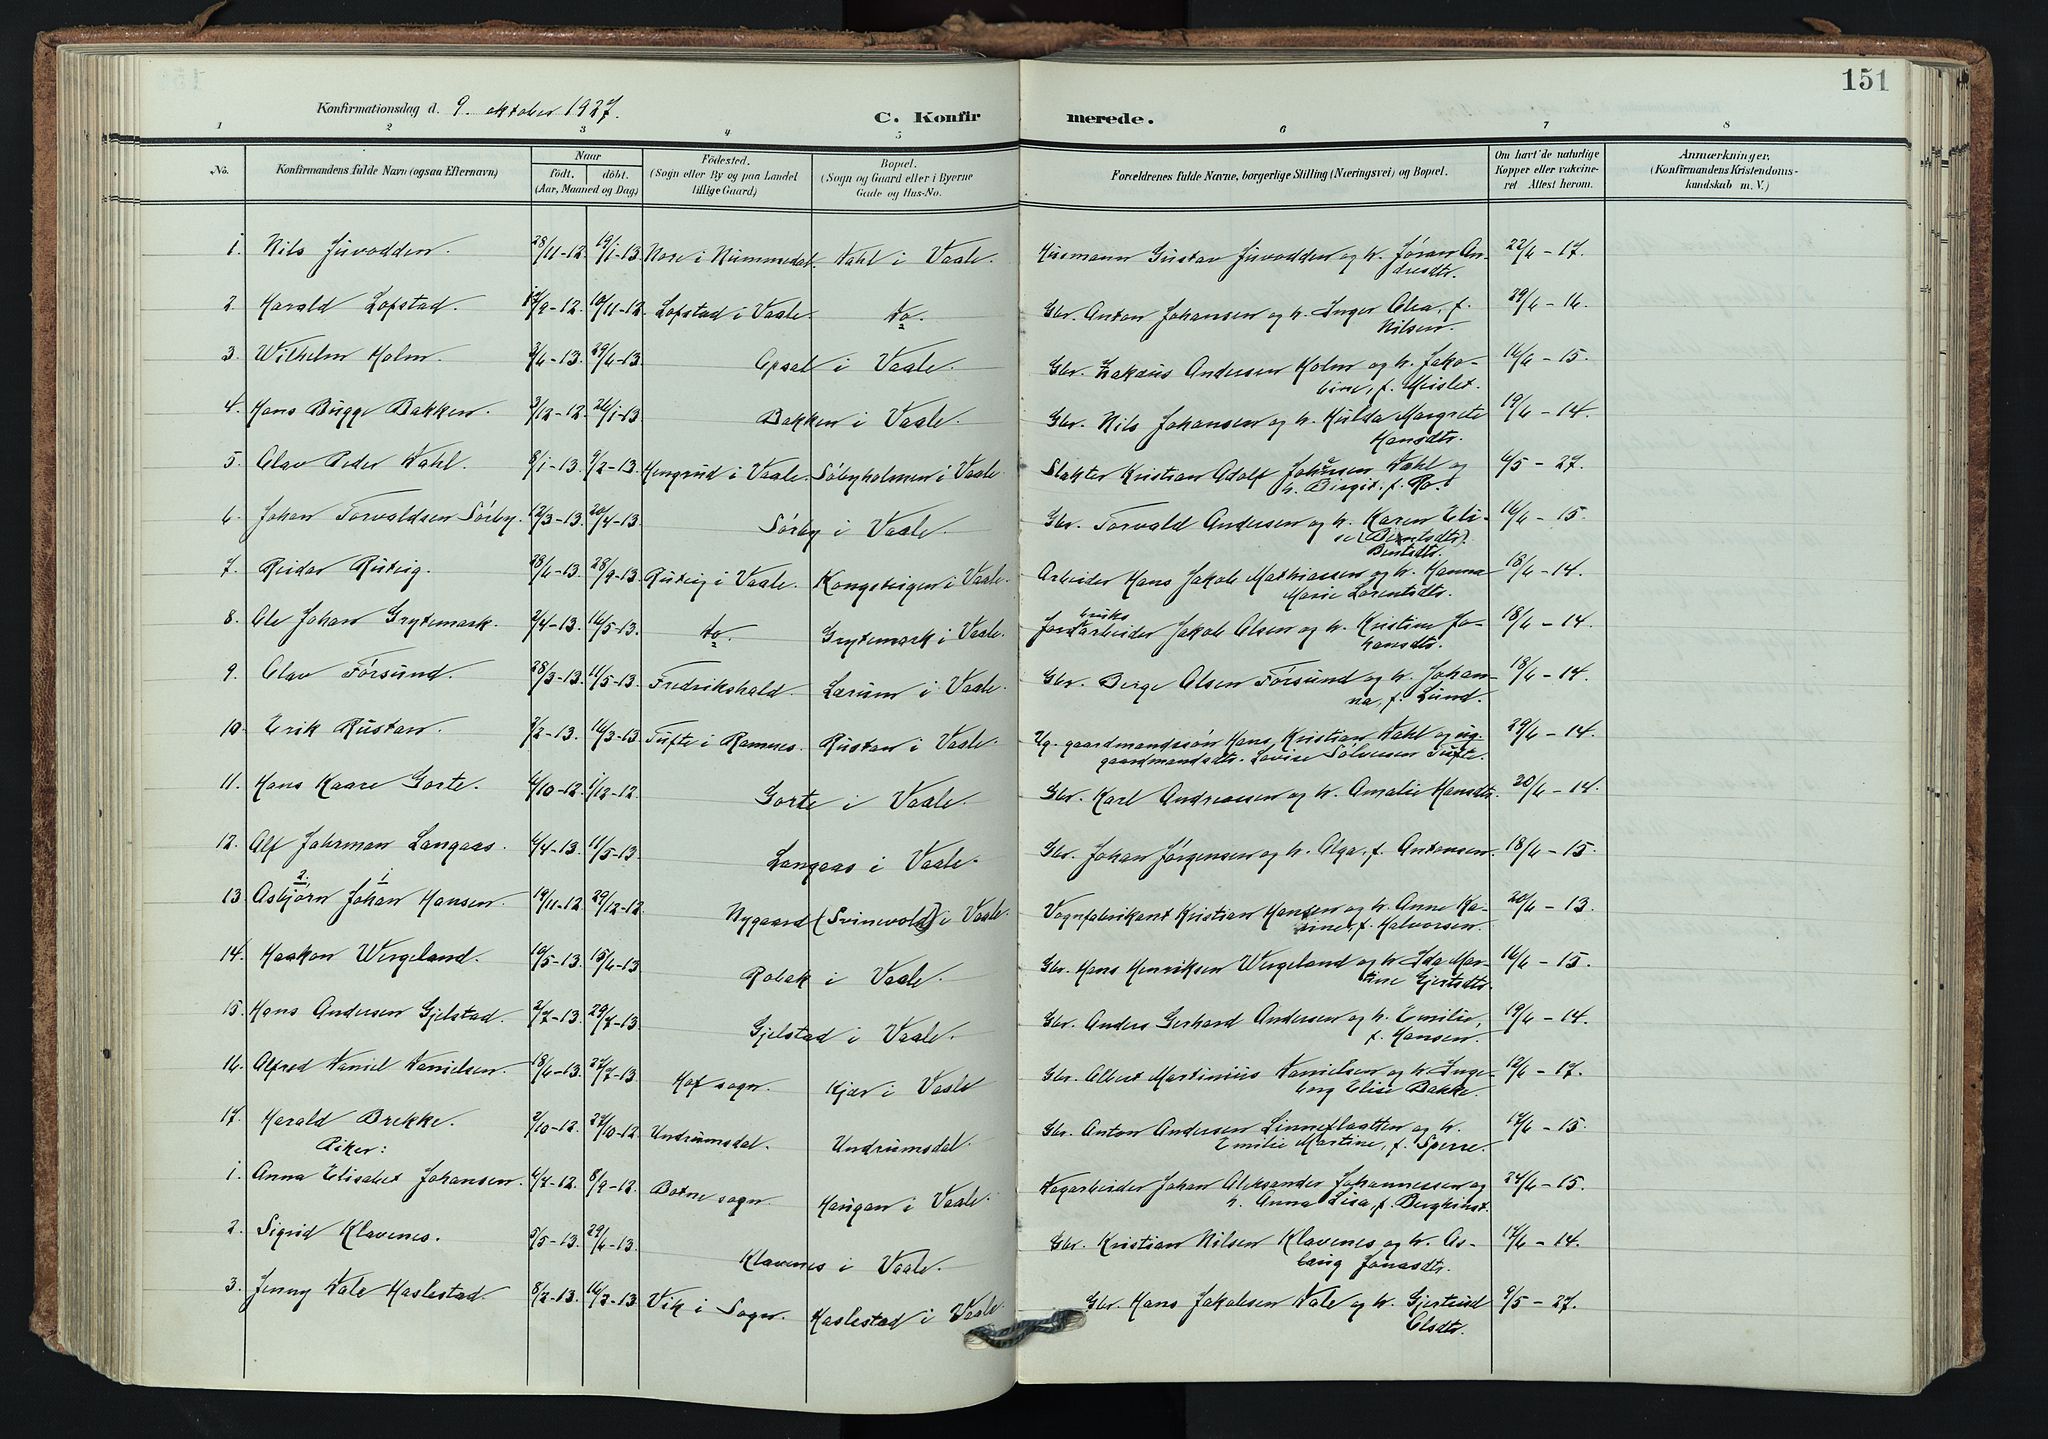 151
Konfirmationsdag d. 9. oktober 1927.
C. Konfirmerede.
1 2 3 4 5 6 7 8
No. Konfirmandens fulde Navn (ogsaa Efternavn) Naar födt. döbt. (Aar, Maaned og Dag) Födested. (Sogn eller By og paa Landet tillige Gaard) Bopæl. (Sogn og Gaard eller i Byerne Gade og Hus-No. Forældrenes fulde Navne, borgerlige Stilling (Næringsvei) og Bopæl. Om havt de naturlige Kopper eller vakcineret Attest herom. Anmærkninger. (Konfirmandens Kristendomskundskab m. V.)
1. Nils Juvodden. 28/11-12 19/1-13 Nore i Nummedal. Dahl i Vaale. Husmann Gustav Juvodden og h. Jøran Andresdtr. 22/6 - 17.
2. Harald Lofstad. 12/9-12. 10/11-12. Lofstad i Vaale. Do. Gbr. Anton Johansen og h. Inger Olea, f. Nilsen. 29/6 - 16.
3. Wilhelm Holm. 2/6-13. 29/6-13 Opsal i Vaale. Gbr. Zakæus Andersen Holm og h. Jakobine, f. Meislet. 16/6 - 15.
4. Hans Bugge Bakken. 3/12-12. 26/1-13 Bakken i Vaale. Gbr. Nils Johansen og h. Hulda Margrete Hansdtr. 19/6 - 14.
5. Olav Peder Dahl. 8/1-13. 9/2-13. Hengsrud i Vaale. Søbyholmen i Vaale Slakter Kristian Adolf Johansen Dahl og h. Birgit, f. Ro. 4/5 - 27.
6. Johan Torvaldsen Sørby. 12/3-13. 20/4-13. Sørby i Vaale. Gbr. Torvald Andersen og h. Karen Elise (Berntsdtr). Bentsdtr. 16/6 - 15.
7. Reidar Rutvig. 28/6-13. 28/9-13 Rutvig i Vaale. Kongsteigen i Vaale. Arbeider Hans Jakob Mathiassen og h. Hanna Marie Lorentsdtr. 18/6 - 14.
8. Ole Johan Grytemark. 2/4-13. 16/5-13. Do. Grytemark i Vaale. Jordbruksarbeider Jakob Olsen og h. Kristine Johansdtr. 18/6 - 14.
9. Olav Førsund. 28/3-13. 11/5-13. Fredrikshald. Lærum i Vaale. Gbr. Berge Olsen Førsund og h. Johanna, f. Lund. 18/6 - 14.
10. Erik Rustan. 3/2-13. 16/3-13. Tufte i Ramnes. Rustan i Vaale. Ug. gaardmandssøn Hans Kristian Dahl og ug. gaardmandsdtr. Lovise Sølvesen Tufte. 29/6 - 14.
11. Hans Kaare Gorte. 4/10-12. 1/12-12. Gorte i Vaale. Gbr. Karl Andreassen og h. Amalie Hansdtr. 20/6 - 14.
12. Alf Jahrman Langaas. 6/4-13. 11/5-13 Langaas i Vaale. Gbr. Johan Jørgensen og h. Olga, f. Antonsen. 18/6 - 15.
13. Asbjørn Johan Hansen. 19/11-12. 29/12-12. Nygaard (Svinevold) i Vaale. Vognfabrikant Kristian Hansen og h. Anne Karine, f. Halvorsen. 20/6 - 13.
14. Haakon Wergeland. 10/5-13. 15/6-13 Robak i Vaale. Gbr. Hans Henriksen Wergeland og h. Ida Martine Gjertsdtr. 16/6 - 15.
15. Hans Andersen Gjelstad. 2/7-13. 29/7-13 Gjelstad i Vaale. Gbr. Anders Gerhard Andersen og h. Emilie, f. Hansen. 19/6 - 14.
16. Alfred Daniel Danielsen. 18/6-13. 27/7-13 Hof sogn. Kjær i Vaale Gbr. Albert Martinius Danielsen og h. Ingeborg Elise Bakke. 12/6 - 17.
17. Harald Brekke. 2/10-12. 27/10-12. Undrumsdal. Undrumsdal. Gbr. Anton Andersen Linneflaatten og h. Emilie Martine, f. Sperre. 17/6 - 15.
Piker:
1. Anna Elisabet Johansen. 4/7-12. 8/9-12. Botne sogn. Haugan i Vaale. Dagarbeider Johan Aleksander Johannessen og h. Anna Lisa, f. Bergkvist. 24/6 - 15.
2. Sigrid Klavenes. 5/5-13. 29/6-13. Klavenes i Vaale. Gbr. Kristian Nilsen Klavenes og h. Aslaug Jonasdtr. 17/6 - 14.
3. Jenny Dale Haslestad. 8/2-13. 16/3-13. Vik i Sogn. Haslestad i Vaale. Gbr. Hans Jakobsen Dale og h. Gjertrud Olsdtr. 9/5 - 27.